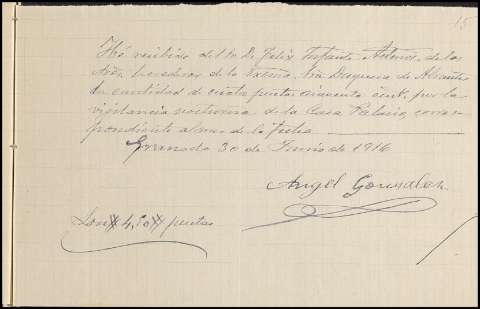 15
He recibido del Sr. D. Felix Infante, Admor. de los
Sres. herederos de la Excma. Sra. Duquesa de Abrantes
la cantidad de cuatro pesetas cincuenta cent. por la
vigilancia nocturna de la Casa Palacio, corres-
pondiente al mes de la fecha
Granada 30 de Junio de 1916
Angel Gonzalez
Son # 4,50 # pesetas